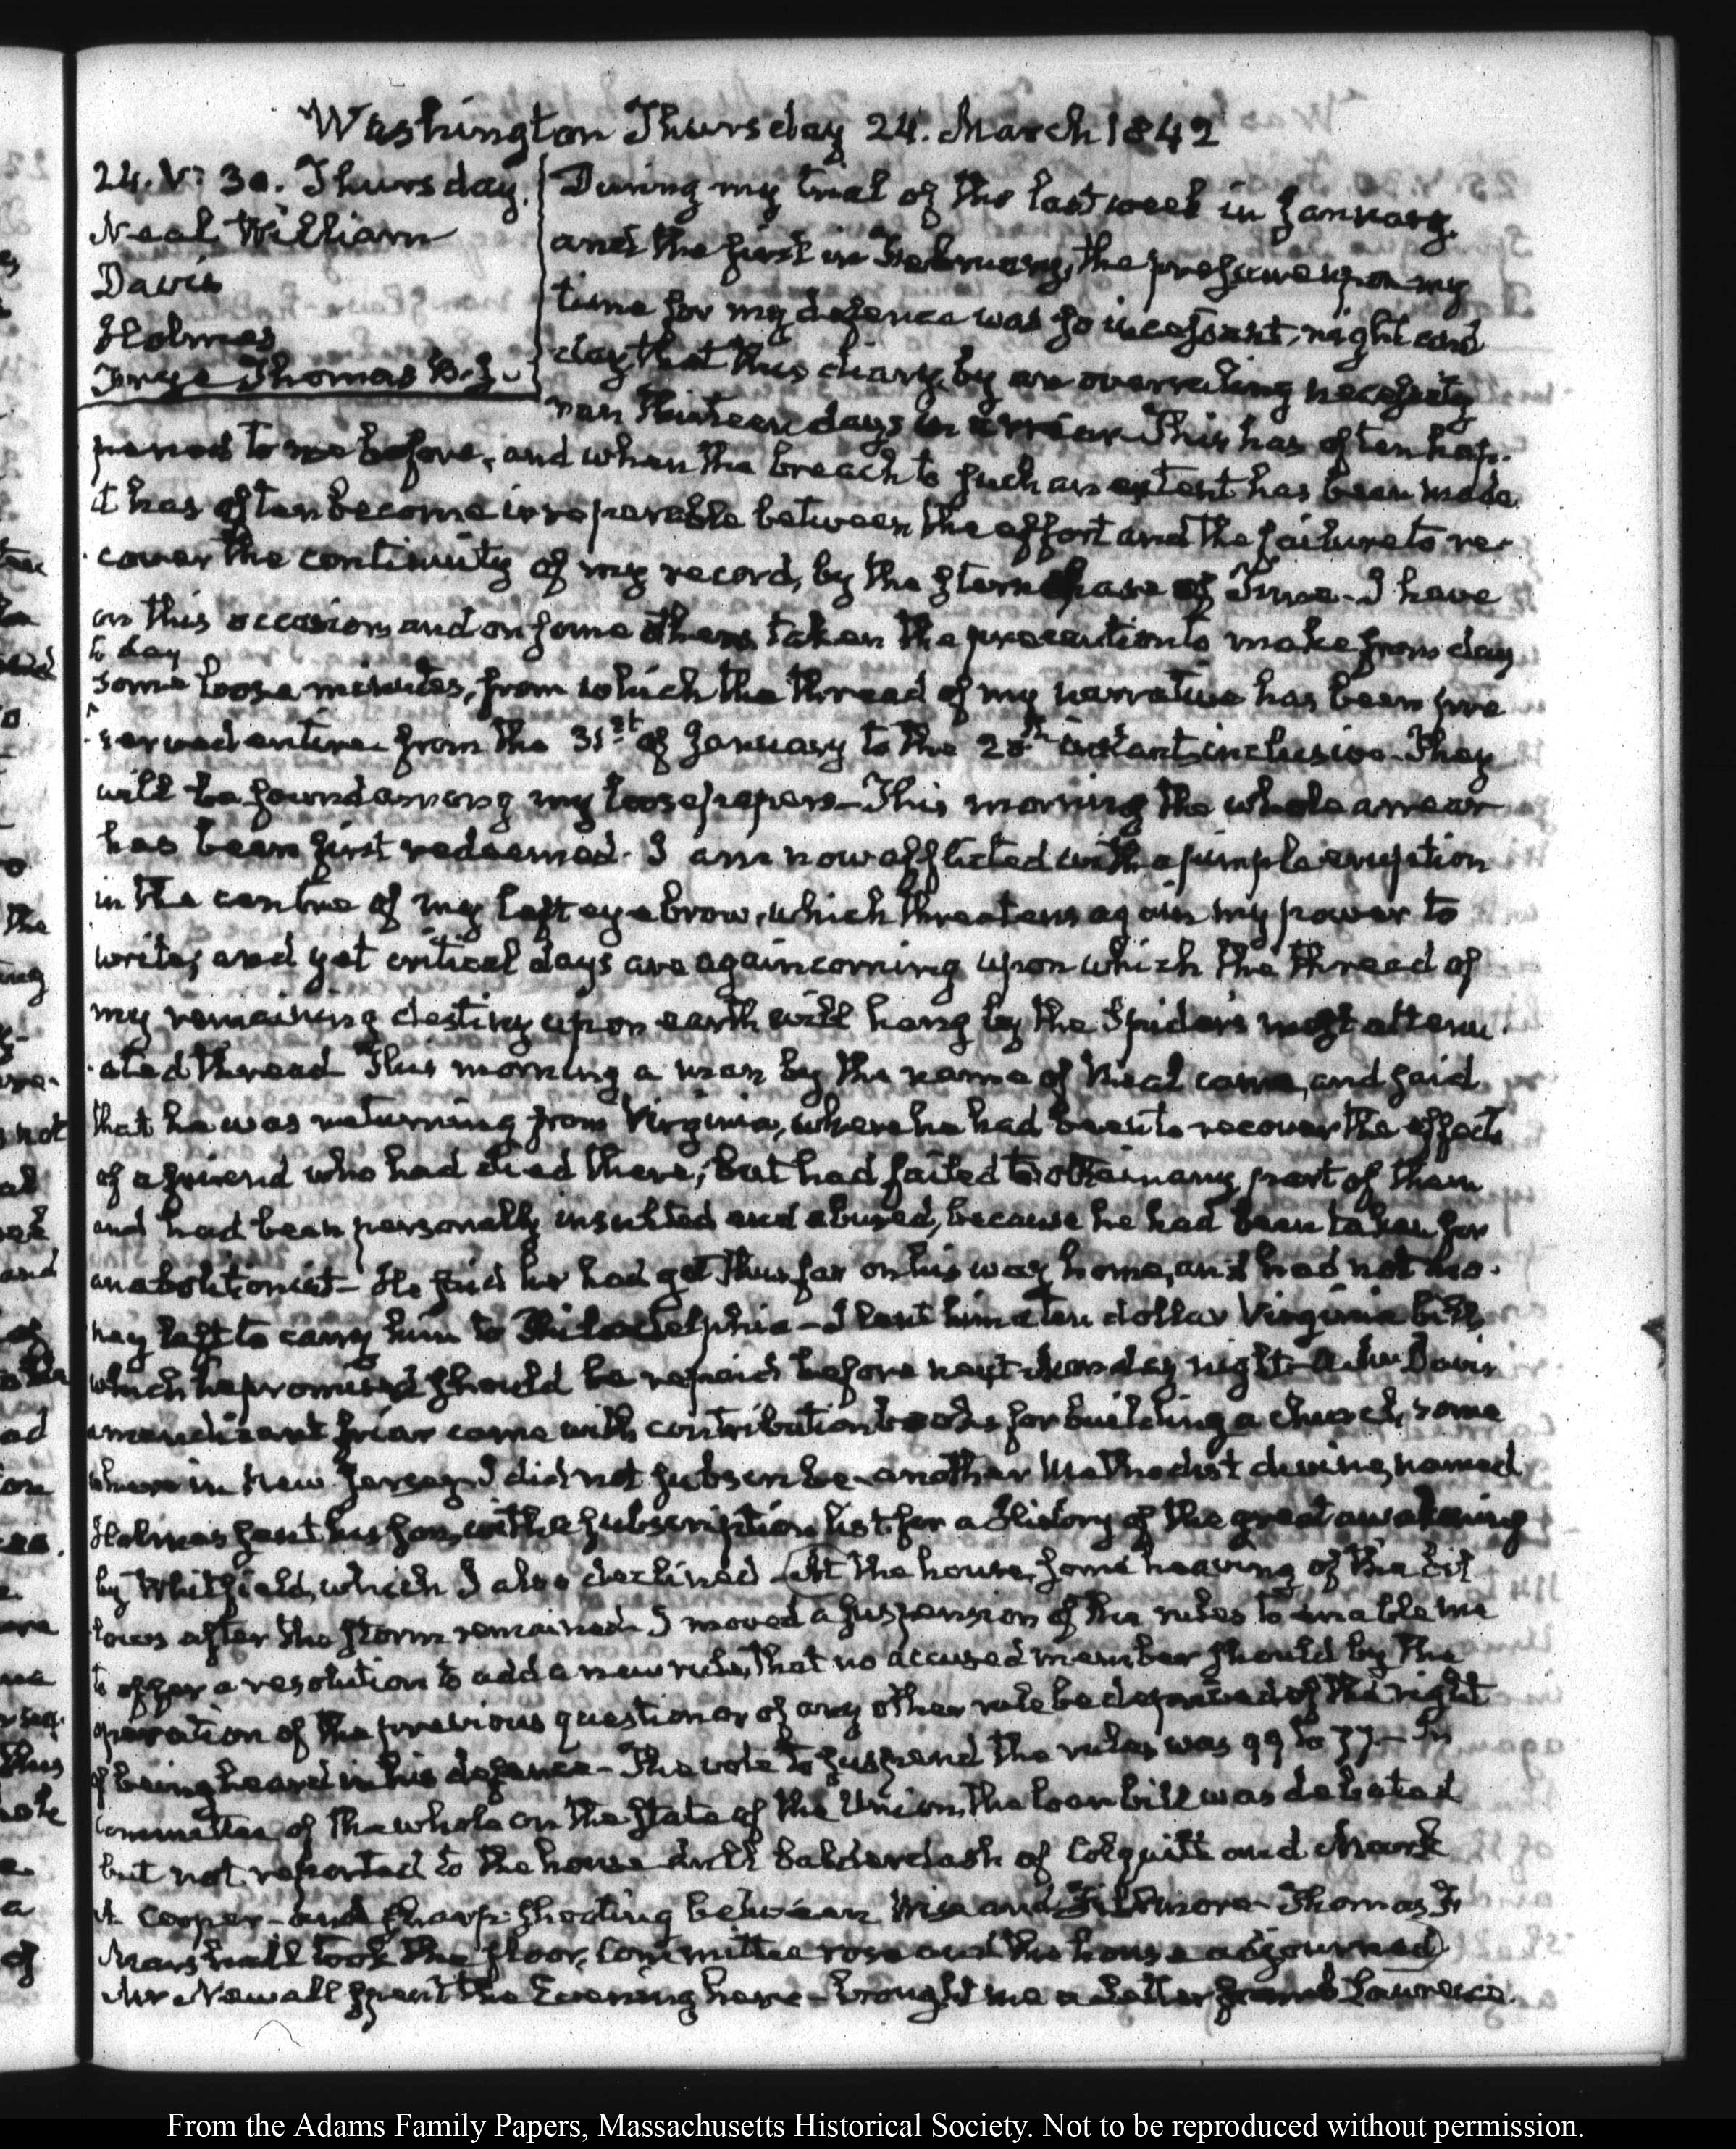 Washington Thursday 24. March 1842
24. V: 30. Thursday.
Neal William
Davis
Holmes
Thomas B. J.
During my trial of the last week in January.
and the first in February, the pressure upon my
time for my defence was so incessant, night and
day, that this diary, by an overruling necessity
ran thirteen days in arrear. This has often hap-
pened to me before, and when the breach to such an extent has been made
it has often become irreparable between the effort and the failure to re-
cover the continuity of my record, by the stern chase of Time. I have
on this occasion, and on some others taken the precaution to make from day
to day
some loose minutes, from which the thread of my narrative has been pre
served entire from the 31st. of January to the 23d. instant inclusive. They
will be found among my loose papers—This morning the whole arrear
has been first redeemed. I am now afflicted with a pimple eruption
in the centre of my left eyebrow, which threatens again my power to
write, and yet critical days are again coming upon which the thread of
my remaining destiny upon earth will hang by the Spider's most attenu-
ated thread. This morning a man by the name of Neal came, and said
that he was returning from Virginia, where he had been to recover the effects
of a friend who had died there; but had failed to obtain any part of them
and had been personally insulted and abused, because he had been taken for
an abolitionist—He said he had got thus far on his way home, and had not mo-
ney left to carry him to Philadelphia—I lent him a ten dollar Virginia bill,
which he promised should be repaid before next day night—A Mr Davis
a mendicant friar came with contribution books for building a church, some
where in New Jersey. I did not subscribe—another Methodist divine, named
Holmes sent his son, with a subscription list for a History of the great awakening
by Whitfield, which I also declined—At the house, some heaving of the bil
lows after the storm remained. I moved a suspension of the rules to enable me
to offer a resolution to add a new rule, that no accused member should by the
operation of the previous question or of any other rule be deprived of the right
of being heard in his defence—The vote to suspend the rules was 99 to 77—In
Committee of the whole on the state of the Union, the loan bill was debated
but not reported to the house dull balderdash of Colquitt and Mark
A Cooper—and sharp-shooting between Wise and Fillmore—Thomas F.
Marshall took the floor, Committee rose and the house adjourned.
Mr Newall spent the Evening here—brought me a Letter Lawrence.
From the Adams Family Papers, Massachusetts Historical Society. Not to be reproduced without permission.